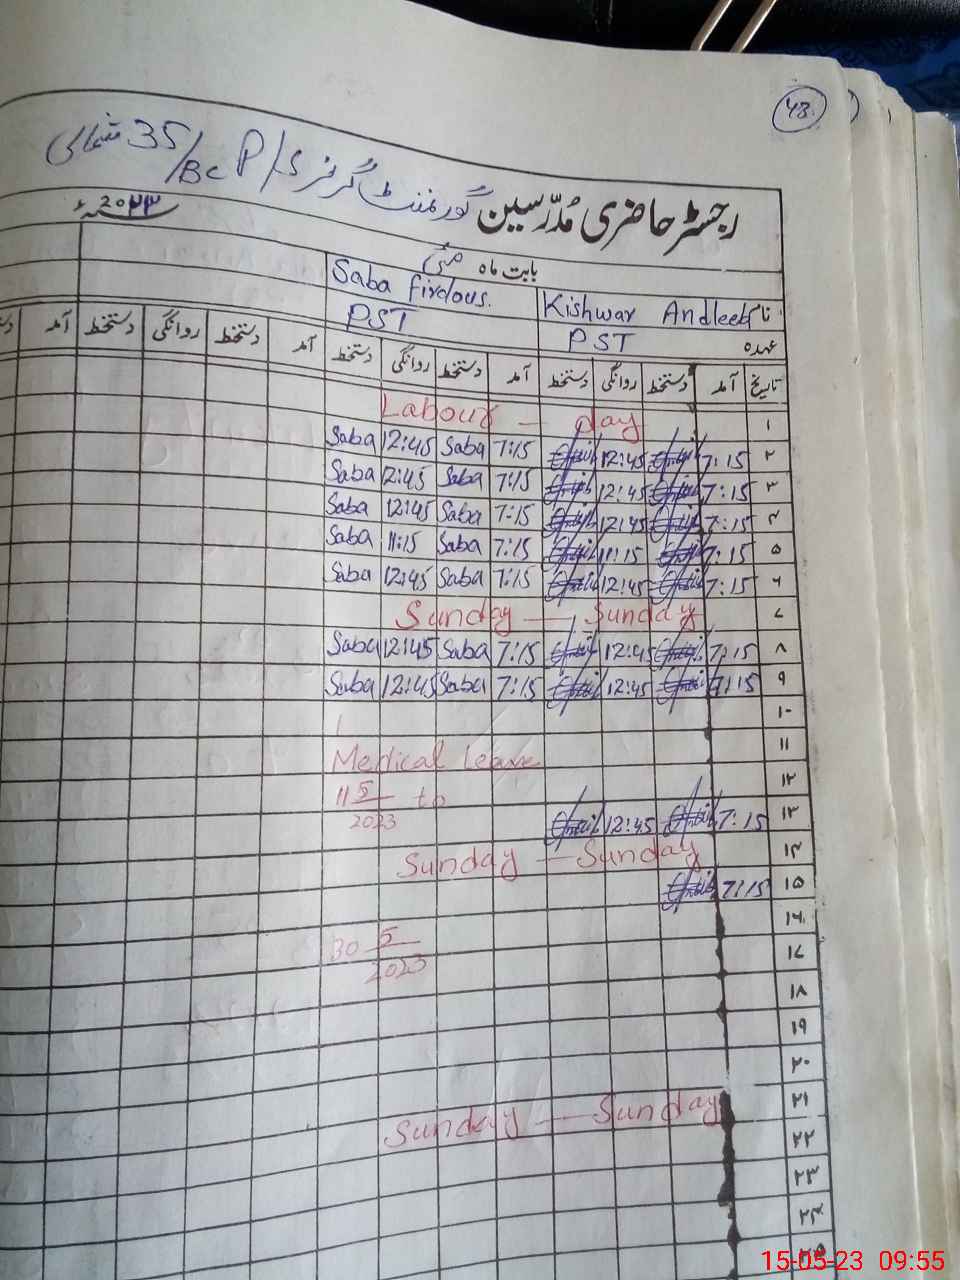 43
گورنمنٹ گرلز P/S 35/BC شمالی
رجسٹر حاضری مُدرّسین
بابت ماہ مئی ۲۰۲۳ء
نام Kishwar Andleeb Saba firdous.
عہدہ PST PST
تاریخ آمد دستخط روانگی دستخط آمد دستخط روانگی دستخط آمد دستخط روانگی دستخط آمد
۱ Labour - day
۲ 7:15 12:45 7:15 Saba 12:45 Saba
۳ 7:15 12:45 7:15 Saba 12:45 Saba
۴ 7:15 12:45 7:15 Saba 12:45 Saba
۵ 7:15 11:15 7:15 Saba 11:15 Saba
۶ 7:15 12:45 7:15 Saba 12:45 Saba
۷ Sunday - Sunday
۸ 7:15 12:45 7:15 Saba 12:45 Saba
۹ 7:15 12:45 7:15 Saba 12:45 Saba
۱۰
۱۱ Medical leave
۱۲ 11 5/2023 to
۱۳ 7:15 12:45
۱۴ Sunday - Sunday
۱۵ 7:15
۱۶ 30 5/2023
۱۷
۱۸
۱۹
۲۰
۲۱ Sunday - Sunday
۲۲
۲۳
۲۴
15-05-23 09:55